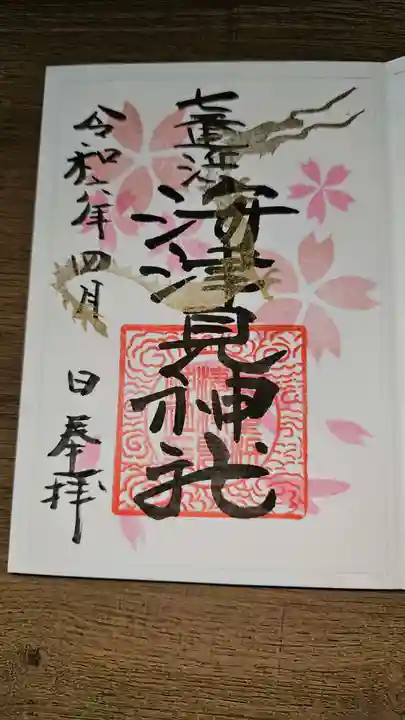 七重浜
海津見神社
令和六年四月 日奉拝